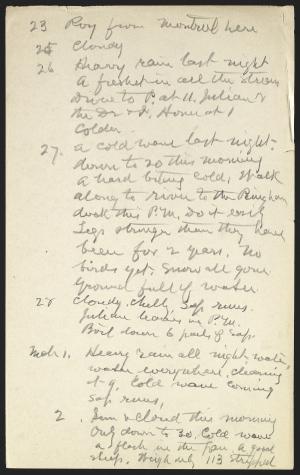 23 Roy from Montreal here
25 Cloudy
26 Heavy rain last night
A freshet in all the streams
Drive to P. at 11. Julian &
the Dr & I. Home at 1
Colder.
27. A cold wave last night.
down to 20 this morning
A hard biting cold. Walk
along to river to the
dock this P.M. Do it easily
Legs stronger than they have
been for 2 years. No
birds yet. Snow all gone
Ground full of water
28 Cloudy, chilly Sap runs.
Julian leaves in P.M.
Boil down 6 pails of sap.
Mch 1. Heavy rain all night, water,
water everywhere, clearing
at 9. Cold wave coming
sap runs,
2 Sun & cloud this morning
Only down to 30. Cold wave
a good
sleep. Weigh only 113 stripped